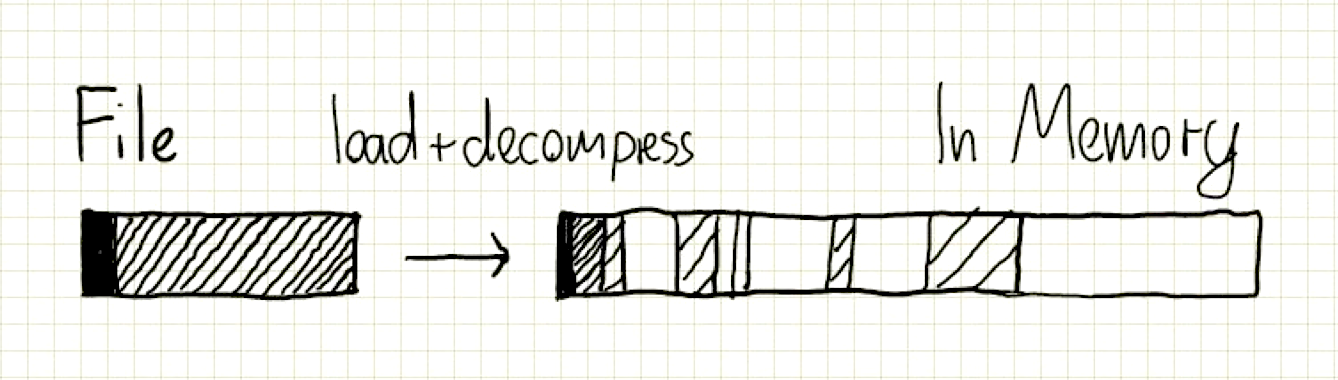 File load+decompress In Memory